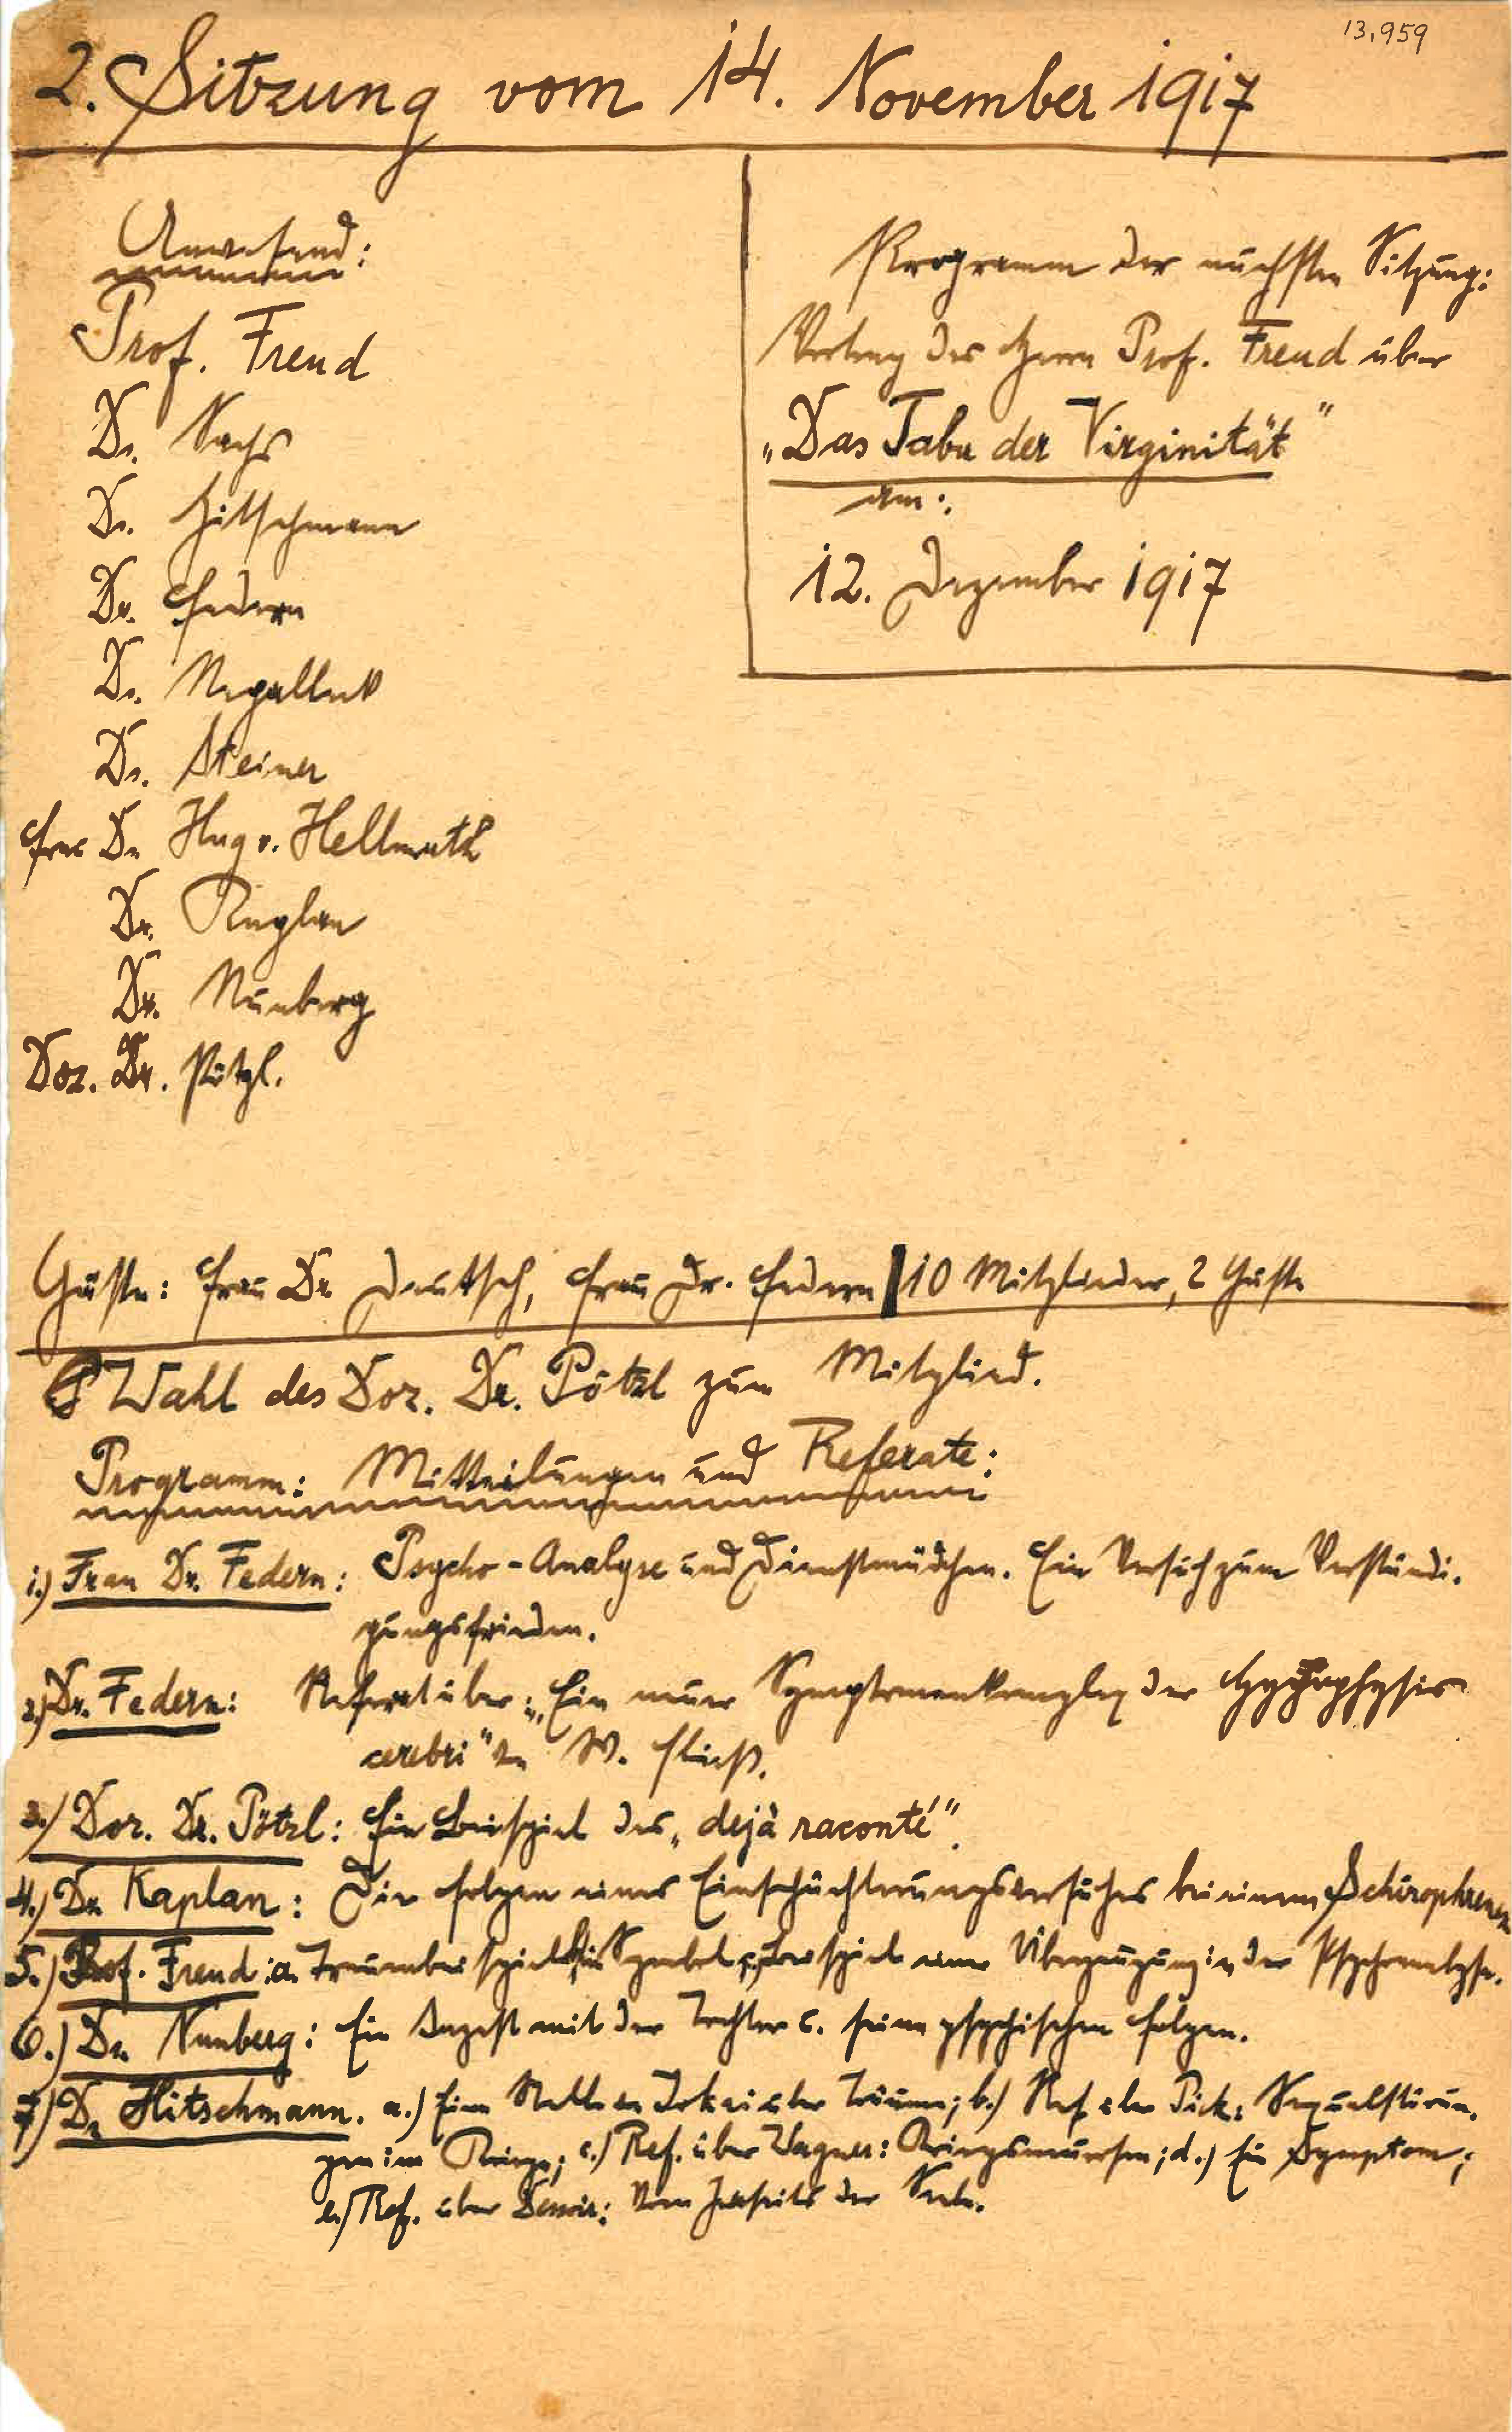 13,959
2. Sitzung vom 14. November 1917
Anwesend:
Prof. Freud
Dr. Sachs
Dr. Hitschmann
Dr. Federn
Dr. Nepallek
Dr. Steiner
Frau Dr. Hug v. Hellmuth
Dr. Kaplan
Dr. Nunberg
Doz. Dr. Pötzl.
Programm der nächsten Sitzung:
Vortrag des Herrn Prof. Freud über
„Das Tabu der Virginität"
am:
12. Dezember 1917
Gäste: Frau Dr. Deutsch, Frau Dr. Federn | 10 Mitglieder, 2 Gäste
Wahl des Doz. Dr. Pötzl zum Mitglied.
Programm: Mitteilungen und Referate:
1.) Frau Dr. Federn: Psycho-Analyse und Dienstmädchen. Ein Versuch zum Verständi-
gungsfrieden.
2.) Dr. Federn: Referat über: „Ein neuer Symptomenkomplex der Hypophysis
cerebri" v. W. Fließ.
3.) Doz. Dr. Pötzl: Ein Beispiel des „dejà raconté".
4.) Dr. Kaplan: Die Folgen eines Einschüchterungsversuches bei einem Schizophrenen
5.) Prof. Freud: a. Traumbeispiel für Symbol, Beispiel einer Überzeugung in der Psychoanalyse.
6.) Dr. Nunberg: Ein Inzest mit der Tochter u. seine psychischen Folgen.
7.) Dr. Hitschmann. a.) Eine Stelle über Träume; b.) Ref. über Pick: Sexualstörun-
gen im Kriege; c.) Ref. über Wagner: Kriegsneurosen; d.) Ein Symptom;
e.) Ref. über Dessoir: Vom Jenseits der Seele.